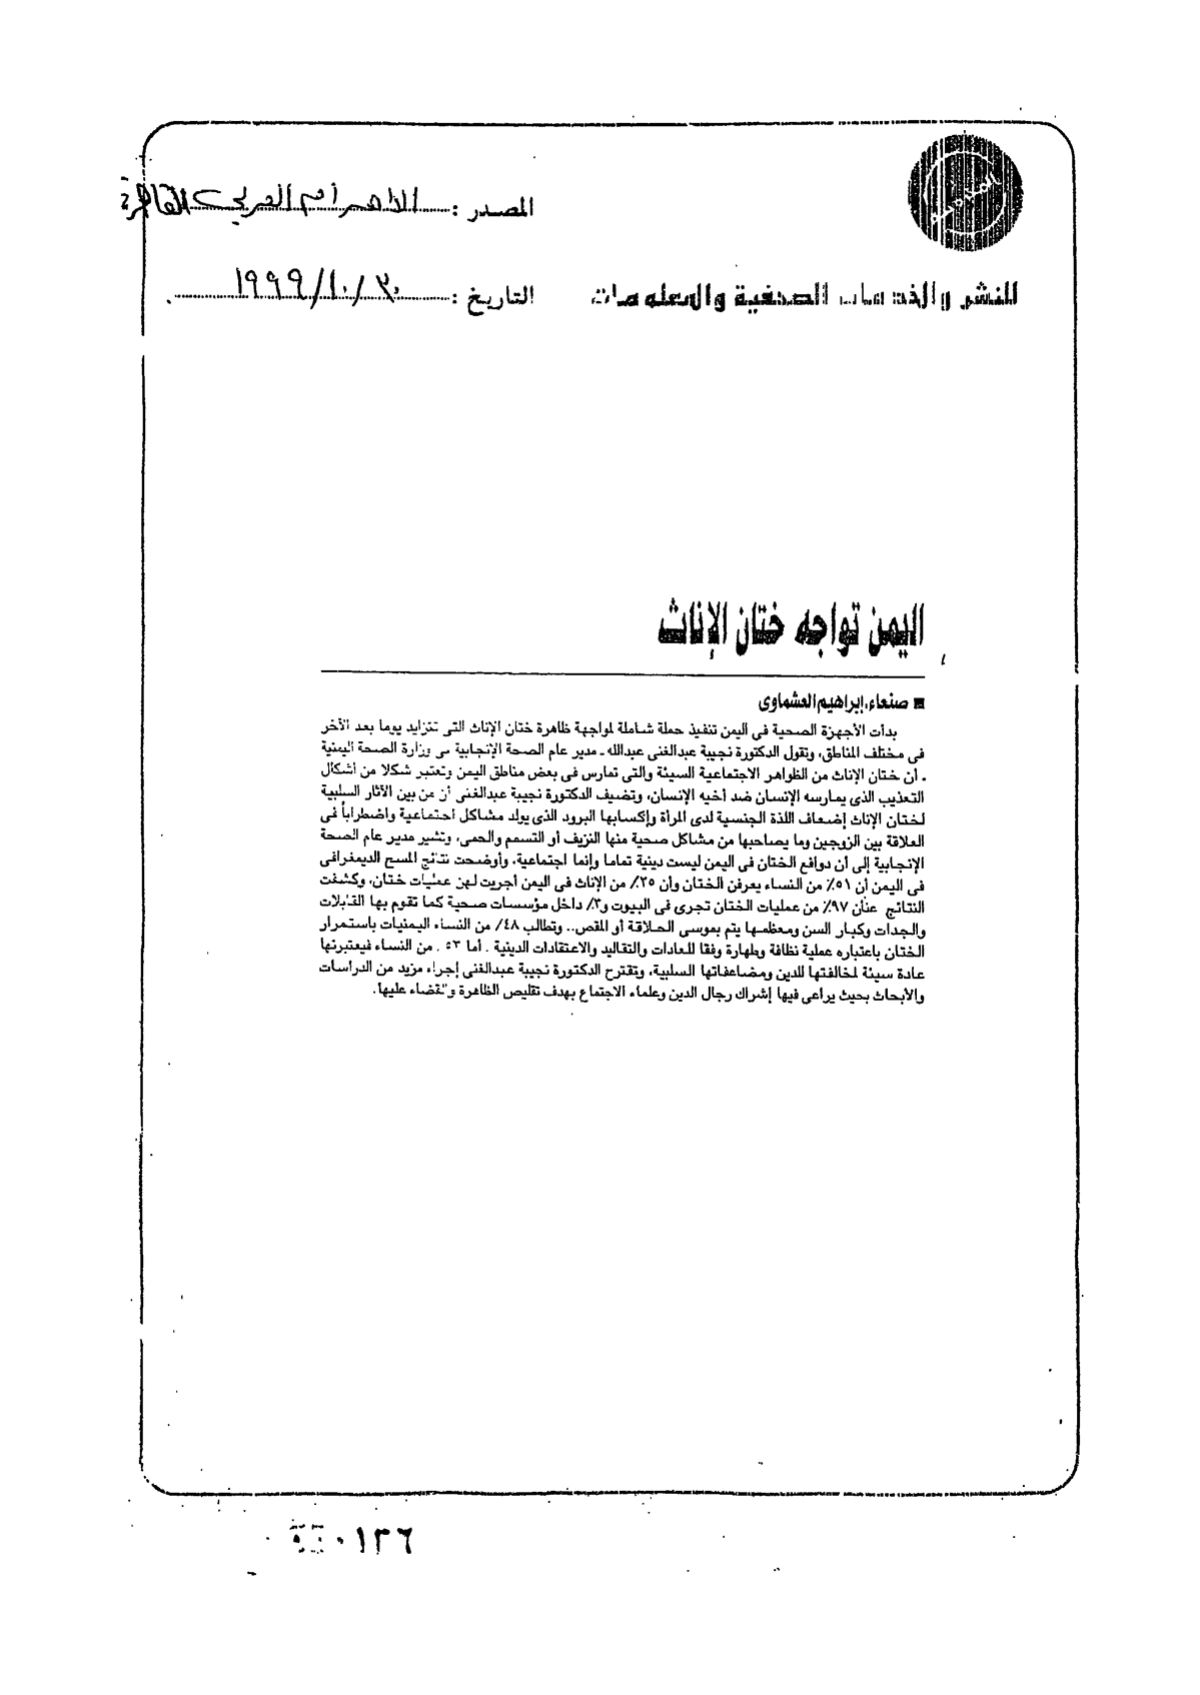 المصدر : الأهرام العربي القاهرة
للنشر والخدمات الصحفية والمعلومات
التاريخ : ٣٠/١٠/١٩٩٩
اليمن تواجه ختان الإناث
■ صنعاء، إبراهيم العشماوى
بدأت الأجهزة الصحية فى اليمن تنفيذ حملة شاملة لمواجهة ظاهرة ختان الإناث التى تتزايد يوما بعد الآخر
فى مختلف المناطق، وتقول الدكتورة نجيبة عبدالغنى عبدالله ـ مدير عام الصحة الإنجابية فى وزارة الصحة اليمنية
ـ أن ختان الإناث من الظواهر الاجتماعية السيئة والتى تمارس فى بعض مناطق اليمن وتعتبر شكلا من أشكال
التعذيب الذى يمارسه الإنسان ضد أخيه الإنسان، وتضيف الدكتورة نجيبة عبدالغنى أن من بين الآثار السلبية
لختان الإناث إضعاف اللذة الجنسية لدى المرأة وإكسابها البرود الذى يولد مشاكل اجتماعية واضطراباً فى
العلاقة بين الزوجين وما يصاحبها من مشاكل صحية منها النزيف أو التسمم والحمى، وتشير مدير عام الصحة
الإنجابية إلى أن دوافع الختان فى اليمن ليست دينية تماما وإنما اجتماعية، وأوضحت نتائج المسح الديمغرافى
فى اليمن أن ٥١٪ من النساء يعرفن الختان وأن ٢٥٪ من الإناث فى اليمن أجريت لهن عمليات ختان، وكشفت
النتائج عنأن ٩٧٪ من عمليات الختان تجرى فى البيوت و٣٪ داخل مؤسسات صحية كما تقوم بها القابلات
والجدات وكبار السن ومعظمها يتم بموسى الحلاقة أو المقص.. وتطالب ٤٨٪ من النساء اليمنيات باستمرار
الختان باعتباره عملية نظافة وطهارة وفقا للعادات والتقاليد والاعتقادات الدينية . أما ٥٣ . من النساء فيعتبرنها
عادة سيئة لمخالفتها للدين ومضاعفاتها السلبية، وتقترح الدكتورة نجيبة عبدالغنى إجراء مزيد من الدراسات
والأبحاث بحيث يراعى فيها إشراك رجال الدين وعلماء الاجتماع بهدف تقليص الظاهرة والقضاء عليها.